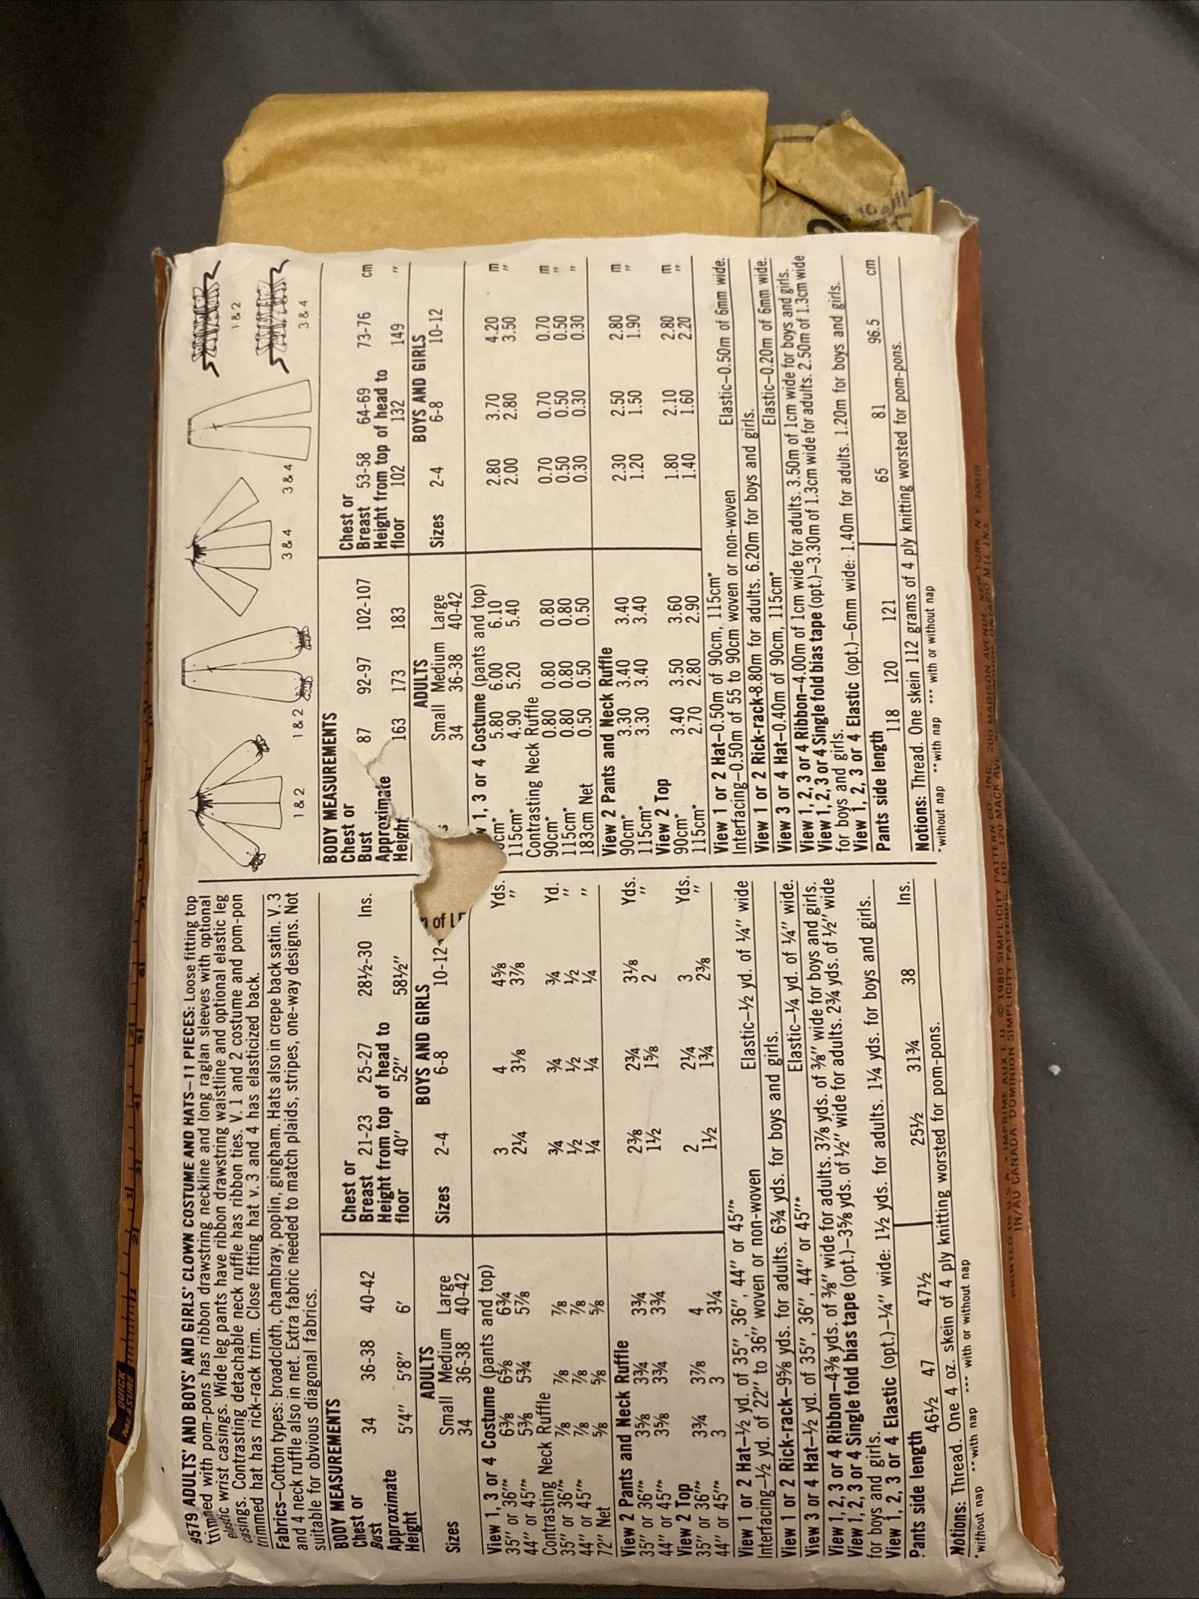 9579 ADULTS' AND BOYS' AND GIRLS' CLOWN COSTUME AND HATS—11 PIECES: Loose fitting top
trimmed with pom-pons has ribbon drawstring neckline and long raglan sleeves with optional
elastic wrist casings. Wide leg pants have ribbon drawstring waistline and optional elastic leg
casings. Contrasting detachable neck ruffle has ribbon ties. V. 1 and 2 costume and pom-pon
trimmed hat has rick-rack trim. Close fitting hat v. 3 and 4 has elasticized back.
Fabrics—Cotton types: broadcloth, chambray, poplin, gingham. Hats also in crepe back satin. V. 3
and 4 neck ruffle also in net. Extra fabric needed to match plaids, stripes, one-way designs. Not
suitable for obvious diagonal fabrics.
BODY MEASUREMENTS
Chest or Bust 34 36-38 40-42 Chest or Breast 21-23 25-27 28½-30 Ins.
Approximate Height 5'4" 5'8" 6' Height from top of head to floor 40" 52" 58½"
ADULTS BOYS AND GIRLS
Sizes Small 34 Medium 36-38 Large 40-42 Sizes 2-4 6-8 10-12
View 1, 3 or 4 Costume (pants and top)
35" or 36"* 6⅜ 6⅝ 6¾ 3 4 4⅝ Yds.
44" or 45"* 5⅜ 5¾ 5⅞ 2¼ 3⅛ 3⅞ "
Contrasting Neck Ruffle
35" or 36"* ⅞ ⅞ ⅞ ¾ ¾ ¾ Yd.
44" or 45"* ⅞ ⅞ ⅞ ½ ½ ½ "
72" Net ⅝ ⅝ ⅝ ¼ ¼ ¼ "
View 2 Pants and Neck Ruffle
35" or 36"* 3⅝ 3¾ 3¾ 2⅜ 2¾ 3⅛ Yds.
44" or 45"* 3⅝ 3¾ 3¾ 1½ 1⅝ 2 "
View 2 Top
35" or 36"* 3¾ 3⅞ 4 2 2¼ 3 Yds.
44" or 45"* 3 3 3¼ 1½ 1¾ 2⅜ "
View 1 or 2 Hat—½ yd. of 35", 36", 44" or 45"* Elastic—½ yd. of ¼" wide
Interfacing—½ yd. of 22" to 36" woven or non-woven
View 1 or 2 Rick-rack—9⅝ yds. for adults. 6¾ yds. for boys and girls.
View 3 or 4 Hat—½ yd. of 35", 36", 44" or 45"* Elastic—¼ yd. of ¼" wide.
View 1, 2, 3 or 4 Ribbon—4⅜ yds. of ⅜" wide for adults. 3⅞ yds. of ⅜" wide for boys and girls.
View 1, 2, 3 or 4 Single fold bias tape (opt.)—3⅝ yds. of ½" wide for adults. 2¾ yds. of ½" wide
for boys and girls.
View 1, 2, 3 or 4 Elastic (opt.)—¼" wide: 1½ yds. for adults. 1¼ yds. for boys and girls.
Pants side length 46½ 47 47½ 25½ 31¾ 38 Ins.
Notions: Thread. One 4 oz. skein of 4 ply knitting worsted for pom-pons.
*without nap **with nap *** with or without nap
1 & 2 1 & 2 3 & 4 3 & 4 1 & 2 3 & 4
BODY MEASUREMENTS
Chest or Bust 87 92-97 102-107 Chest or Breast 53-58 64-69 73-76 cm
Approximate Height 163 173 183 Height from top of head to floor 102 132 149 "
ADULTS BOYS AND GIRLS
s Small 34 Medium 36-38 Large 40-42 Sizes 2-4 6-8 10-12
1, 3 or 4 Costume (pants and top)
cm* 5.80 6.00 6.10 2.80 3.70 4.20 m
115cm* 4.90 5.20 5.40 2.00 2.80 3.50 "
Contrasting Neck Ruffle
90cm* 0.80 0.80 0.80 0.70 0.70 0.70 m
115cm* 0.80 0.80 0.80 0.50 0.50 0.50 "
183cm Net 0.50 0.50 0.50 0.30 0.30 0.30 "
View 2 Pants and Neck Ruffle
90cm* 3.30 3.40 3.40 2.30 2.50 2.80 m
115cm* 3.30 3.40 3.40 1.20 1.50 1.90 "
View 2 Top
90cm* 3.40 3.50 3.60 1.80 2.10 2.80 m
115cm* 2.70 2.80 2.90 1.40 1.60 2.20 "
View 1 or 2 Hat—0.50m of 90cm, 115cm* Elastic—0.50m of 6mm wide.
Interfacing—0.50m of 55 to 90cm woven or non-woven
View 1 or 2 Rick-rack-8.80m for adults. 6.20m for boys and girls.
View 3 or 4 Hat—0.40m of 90cm, 115cm* Elastic—0.20m of 6mm wide.
View 1, 2, 3 or 4 Ribbon—4.00m of 1cm wide for adults. 3.50m of 1cm wide for boys and girls.
View 1, 2, 3 or 4 Single fold bias tape (opt.)—3.30m of 1.3cm wide for adults. 2.50m of 1.3cm wide
for boys and girls.
View 1, 2, 3 or 4 Elastic (opt.)—6mm wide: 1.40m for adults. 1.20m for boys and girls.
Pants side length 118 120 121 65 81 96.5 cm
Notions: Thread. One skein 112 grams of 4 ply knitting worsted for pom-pons.
*without nap **with nap *** with or without nap
of
QUICK
MEASURE
PRINTED IN U.S.A. - IMPRIME AUX E.U. © 1980 SIMPLICITY PATTERN CO. INC., 200 MADISON AVENUE, NEW YORK, N.Y. 10016
IN/AU CANADA, DOMINION SIMPLICITY PATTERNS LTD., 120 MACK AVE